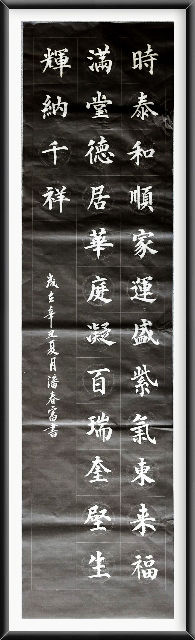 時泰和順家運盛紫氣東来福
滿堂德居華庭凝百瑞奎壁生
輝納千祥
歲在辛丑夏月潘春富書